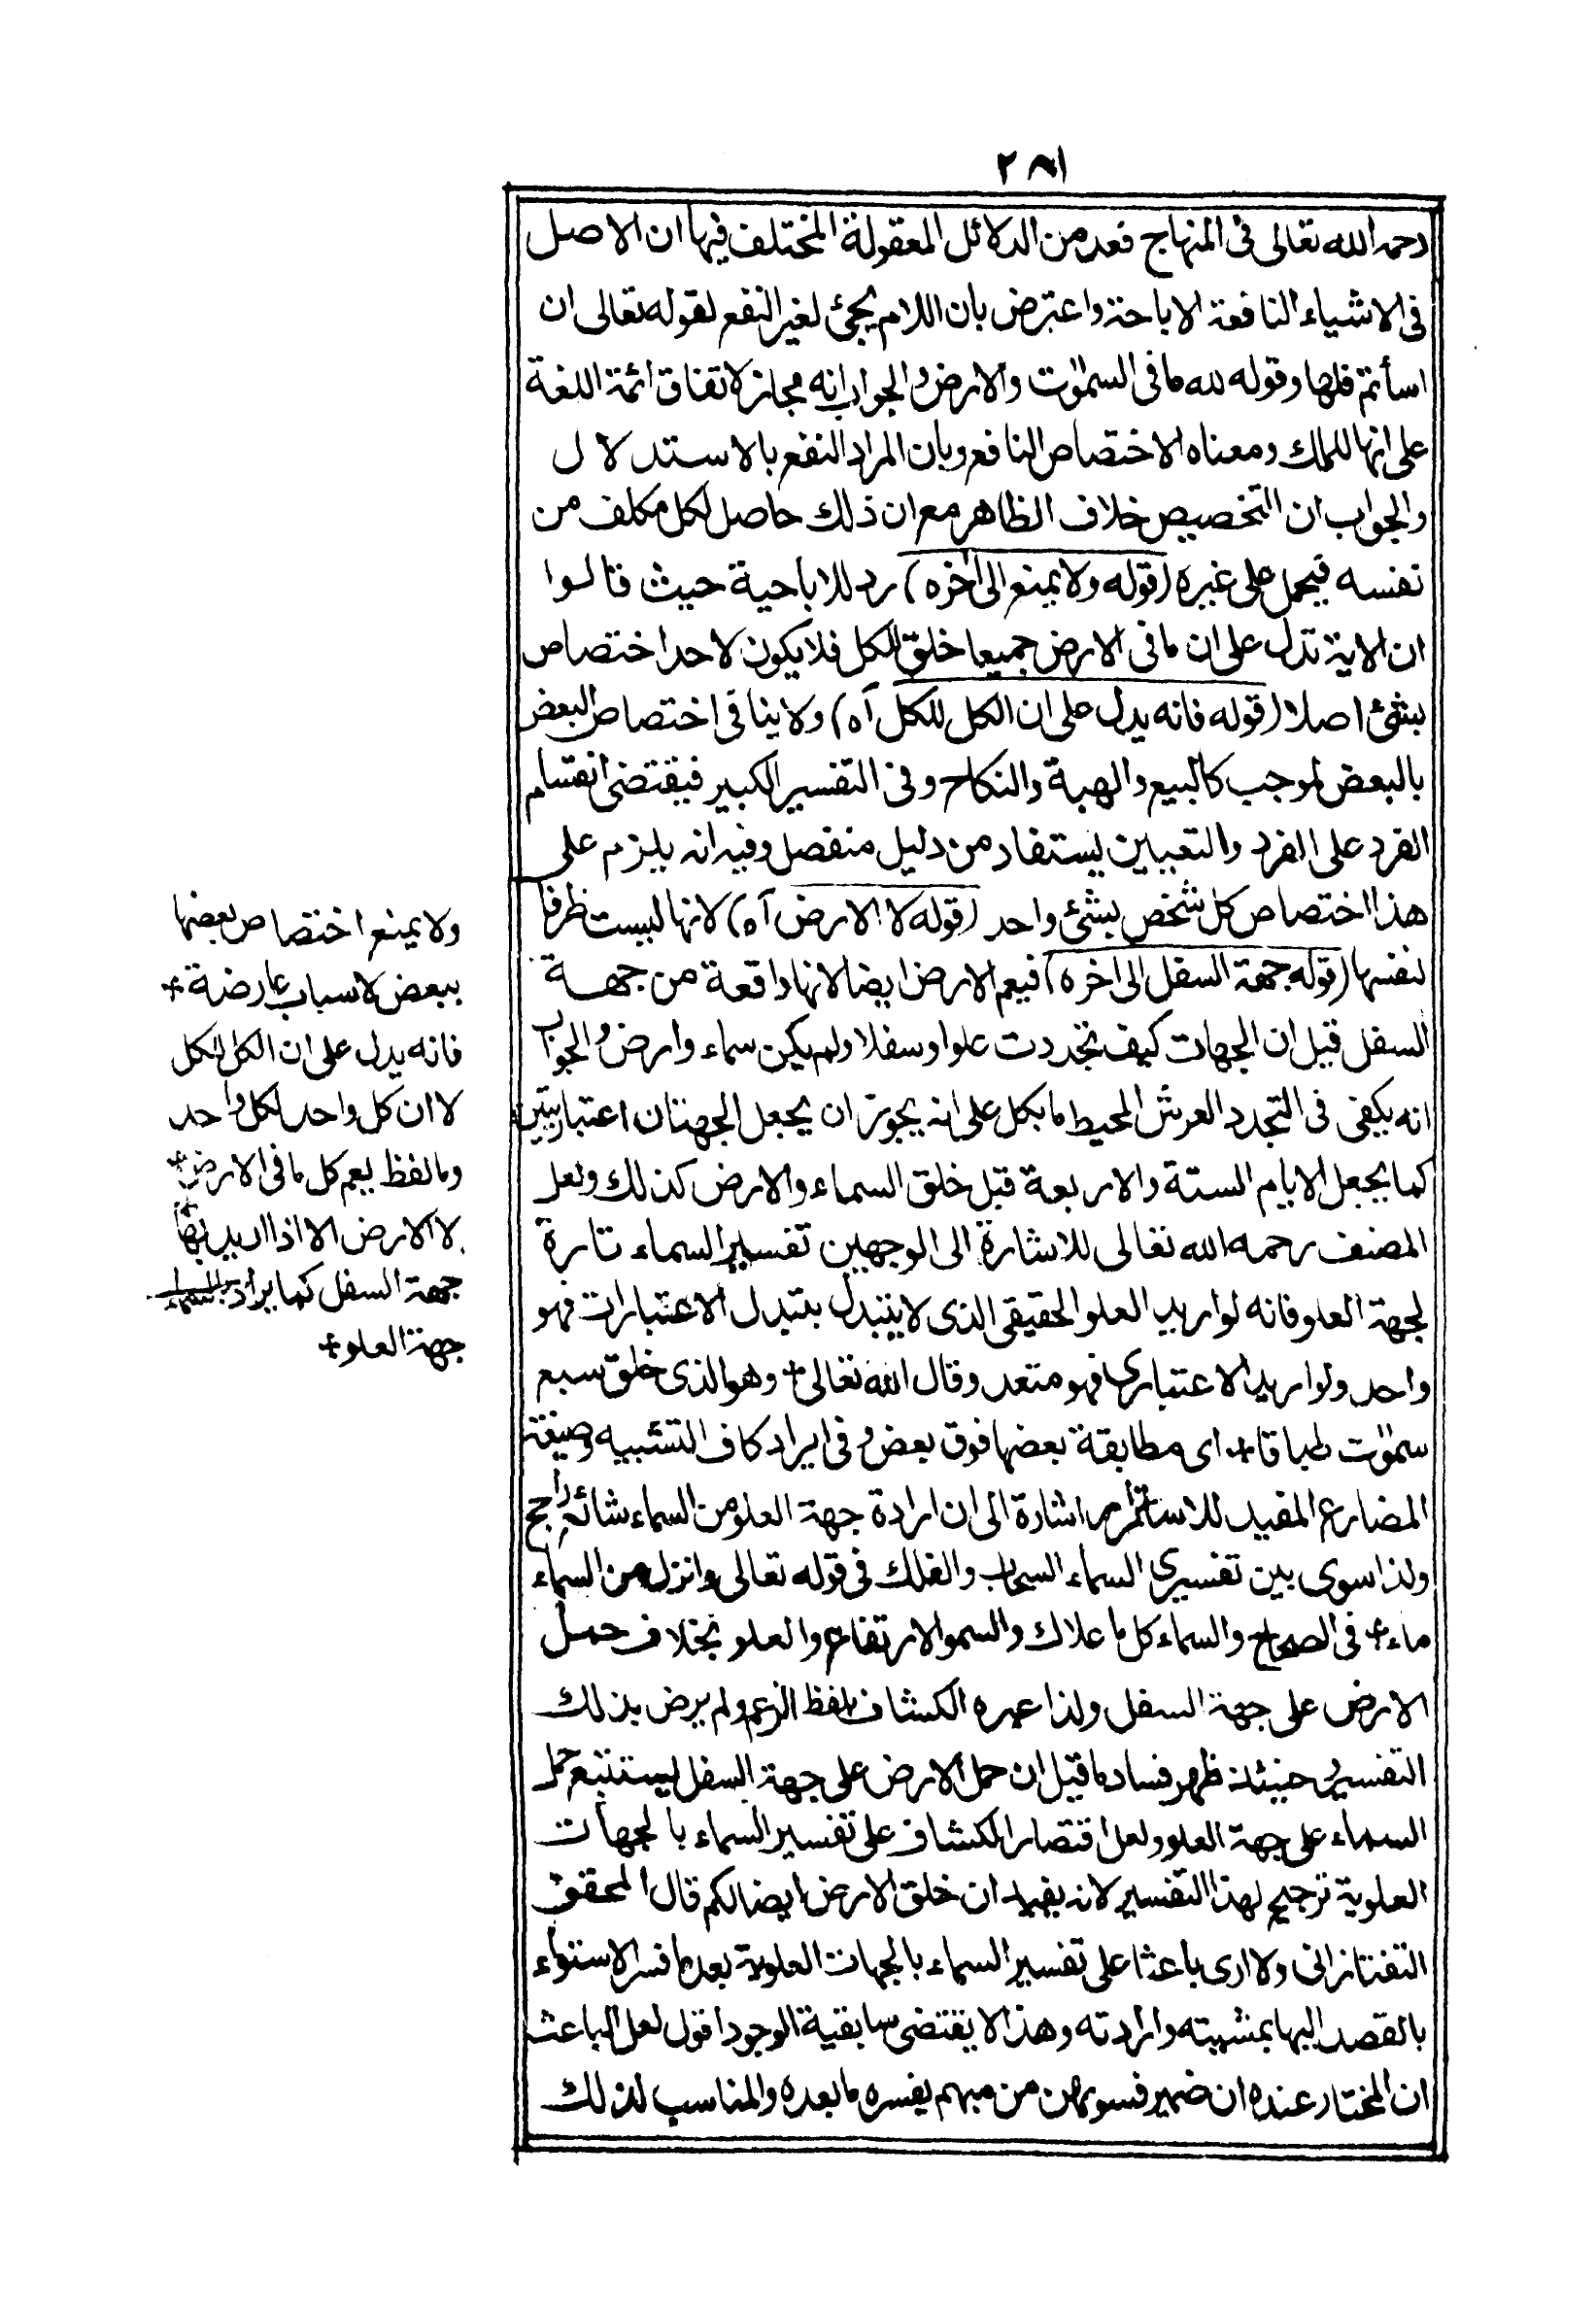 ٢٨١
رحمه الله تعالى فى المنهاج فعد من الدلائل المعقولة المختلف فيها ان الاصل
فى الاشياء النافعة الاباحة واعترض بان اللام يجئ لغير النفع لقوله تعالى ان
اسأتم فلها وقوله لله ما فى السمٰوٰت والارض والجواب انه مجاز لاتفاق ائمة اللغة
على انها للملك ومعناه الاختصاص النافع وبان المراد النفع بالاستدلال
والجواب ان التخصيص خلاف الظاهر مع ان ذلك حاصل لكل مكلف من
نفسه فيحمل على غيره (قوله ولا يمنع الى اخره) رد للاباحية حيث قالوا
ان الاية تدل على ان ما فى الارض جميعا خلق للكل فلا يكون لاحد اختصاص
بشئ اصلا (قوله فانه يدل على ان الكل للكل آه) ولا ينافى اختصاص البعض
بالبعض لموجب كالبيع والهبة والنكاح وفى التفسير الكبير فيقتضى انقسام
الفرد على الفرد والتعيين يستفاد من دليل منفصل وفيه انه يلزم على
هذا اختصاص كل شخص بشئ واحد (قوله لا الارض آه) لانها ليست ظرفا
لنفسها (قوله جهة السفل الى اخره) فيعم الارض ايضا لانها واقعة من جهة
السفل قيل ان الجهات كيف تحددت علوا وسفلا ولم يكن سماء وارض والجواب
انه يكفى فى التحدد العرش المحيط بالكل على انه يجوز ان يجعل الجهتان اعتباريتين
كما يجعل الايام الستة والاربعة قبل خلق السماء والارض كذلك ولعل
المصنف رحمه الله تعالى للاشارة الى الوجهين تفسير السماء تارة
لجهة العلو فانه لو اريد العلو الحقيقى الذى لا يتبدل بتبدل الاعتبارات فهو
واحد ولو اريد الاعتبارى فهو متعدد وقال الله تعالى + وهو الذى خلق سبع
سمٰوٰت طباقا + اى مطابقة بعضها فوق بعض وفى ايراد كاف التشبيه وصيغة
المضارع المفيد للاستمرار اشارة الى ان ارادة جهة العلو من السماء شائع راجح
ولذا سوى بين تفسيرى السماء السحاب والفلك فى قوله تعالى وانزل من السماء
ماء + فى الصحاح والسماء كل ما علاك والسمو الارتفاع والعلو بخلاف حمل
الارض على جهة السفل ولذا عبره الكشاف بلفظ الزعم ولم يرض بذلك
التفسير وحينئذ ظهر فساد ما قيل ان حمل الارض على جهة السفل يستتبع حمل
السماء على جهة العلو ولعل اقتصار الكشاف على تفسير السماء بالجهات
العلوية ترجيح لهذا التفسير لانه يفيد ان خلق الارض ايضا لكم قال المحقق
التفتازانى ولا ارى باعثا على تفسير السماء بالجهات العلوية بعد ما فسر الاستواء
بالقصد اليها بمشيته وارادته وهذا لا يقتضى سابقية الوجود اقول لعل الباعث
ان المختار عنده ان ضمير فسوٰهن من مبهم يفسره ما بعده والمناسب لذلك
ولا يمنع اختصاص بعضها
ببعض لاسباب عارضة +
فانه يدل على ان الكل للكل
لا ان كل واحد لكل واحد
وما لفظ يعم كل ما فى الارض +
لا الارض الا اذا اريد بها
جهة السفل كما يراد بالسماء
جهة العلو +